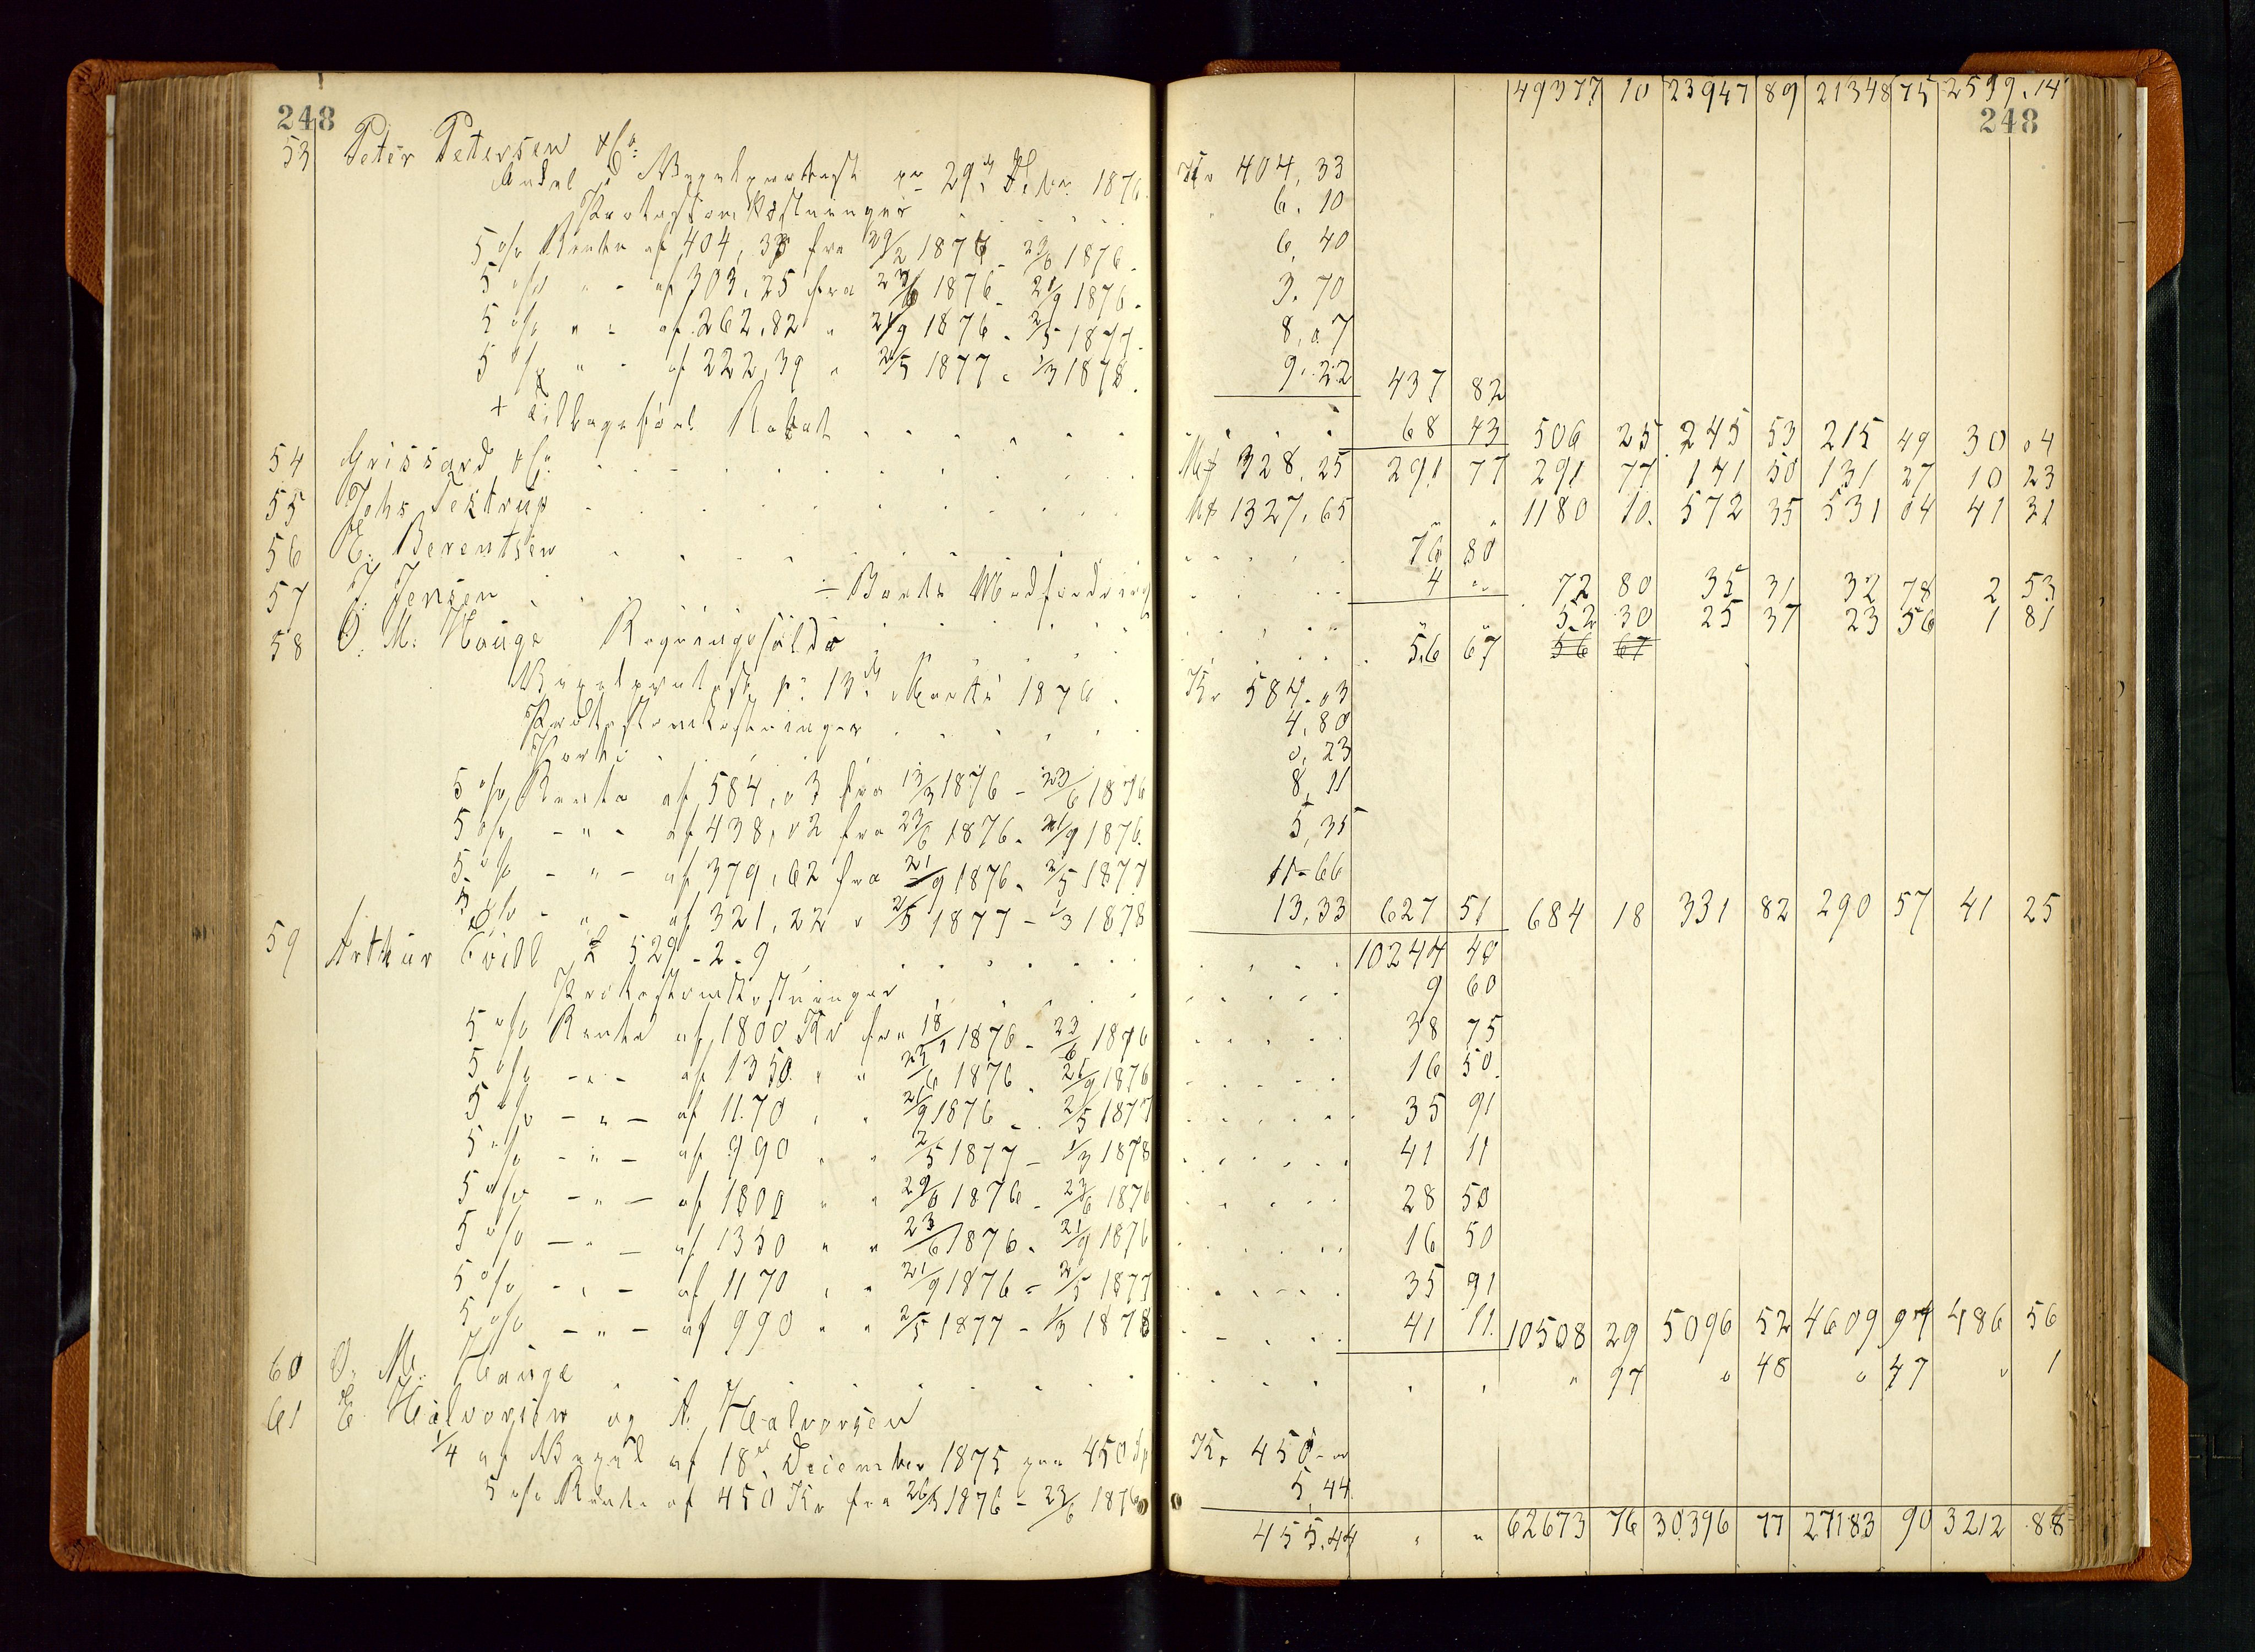 49377 10 23947 89 21348 75 2599. 14
248 248
53 Peter Pettersen & Co:
Andel i Vexelprotest pr 29de Febr. 1876. Kr 404,33
Protestomkostninger 6.10
5 o/o Rente af 404,33 fra 29/2 1876 - 23/6 1876. 6,40
5 o/o " - af 303,25 fra 23/6 1876 - 21/9 1876. 3.70
5 o/o " - af 262,82 " 21/9 1876 - 2/5 1877. 8,07
5 o/o " - af 222,39 " 2/5 1877 - 1/3 1878. 9.32 437 82
+ Tilbageført Rabat 68 43 506 25 245 53 215 49 30 04
54 Grissard & Co: Mf 328.25 291 77 291 77 141 50 131 27 10 23
55 Johs Testrup Mf 1327.65 " " 1180 10. 572 35 531 04 41 31
56 E. Berentsen 76 80
÷ Bankens Modfordring 4 " 72 80 35 31 32 78 2 53
57 J. Jensen " " 52 30 25 37 23 56 1 81
58 O. M. Hauge Regningsfølde 56 67 56 67
Vexelprotest pr 13de Marts 1876. Kr 584.03
Protestomkostninger 4,80
Porto 0,23
5 o/o Rente af 584,03 fra 13/3 1876 - 23/6 1876 8,11
5 o/o - " - af 438,02 fra 23/6 1876 - 21/9 1876. 5,35
5 o/o - " - af 379,62 fra 21/9 1876 - 2/5 1877 11-66
5 o/o - " - af 321,22 " 2/5 1877 - 1/3 1878 13,33 627 51 684 18 331 82 290 57 41 25
59 Arthur £ 529-2-9 10244 40
Protestomkostninger 9 60
5 o/o Rente af 1800 Kr fra 18/1 1876 - 23/6 1876 38 75
5 o/o - " - af 1350 " " 23/6 1876 - 21/9 1876 16 50.
5 o/o - " - af 1170 " " 21/9 1876 - 2/5 1877 35 91
5 o/o - " - af 990 " " 2/5 1877 - 1/3 1878 41 11
5 o/o - " - af 1800 " " 29/2 1876 - 23/6 1876 28 50
5 o/o - " - af 1350 " " 23/6 1876 - 21/9 1876 16 50
5 o/o - " - af 1170 " " 21/9 1876 - 2/5 1877 35 91
5 o/o - " - af 990 " " 2/5 1877 - 1/3 1878 41 11. 10508 29 5096 52 4609 97 486 56
60 O. M. Hauge " 97 " 48 " 47 " 1
61 E. Halvorsen og A. Halvorsen
1/4 af Vexel af 18de December 1875 paa 450 Sp Kr. 450-
5 o/o Rente af 450 Kr fra 26/3 1876 - 23/6 1876 5,44
455.44 " " 62673 76 30396 77 27183 90 3212 88